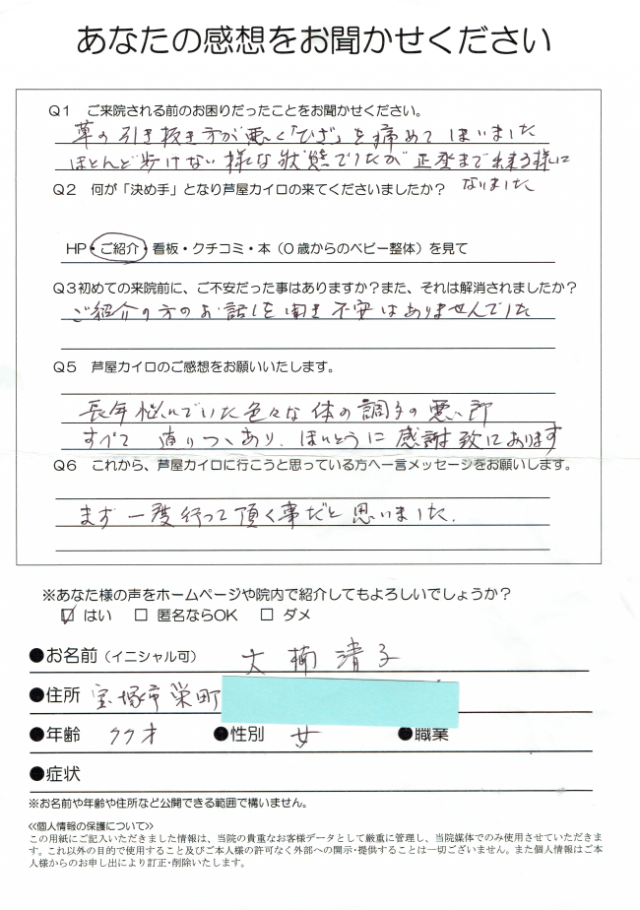 あなたの感想をお聞かせください
Q1 ご来院される前のお困りだったことをお聞かせください。
草の引き抜き方が悪く「ひざ」を痛めてしまいました
ほとんど歩けない様な状態でしたが 正座まで出来る様に
なりました
Q2 何が「決め手」となり芦屋カイロの来てくださいましたか?
HP・ご紹介・看板・クチコミ・本(0歳からのベビー整体)を見て
Q3初めての来院前に、ご不安だった事はありますか?また、それは解消されましたか?
ご紹介の方のお話しを聞き不安はありませんでした
Q5 芦屋カイロのご感想をお願いいたします。
長年悩んでいた色々な体の調子の悪い所
すべて 直りつゝあり、ほんとうに感謝致しております
Q6 これから、芦屋カイロに行こうと思っている方へ一言メッセージをお願いします。
まず一度行って頂く事だと思いました.
※あなた様の声をホームページや院内で紹介してもよろしいでしょうか?
☑ はい □ 匿名ならOK □ ダメ
●お名前(イニシャル可) 大楠 清子
●住所 宝塚市栄町
●年齢 77才 ●性別 女 ●職業
●症状
※お名前や年齢や住所など公開できる範囲で構いません。
≪個人情報の保護について≫
この用紙にご記入いただきました情報は、当院の貴重なお客様データとして厳重に管理し、当院媒体でのみ使用させていただきま
す。これ以外の目的で使用すること及びご本人様の許可なく外部への開示・提供することは一切ございません。また個人情報はご本
人様からのお申し出により訂正・削除いたします。